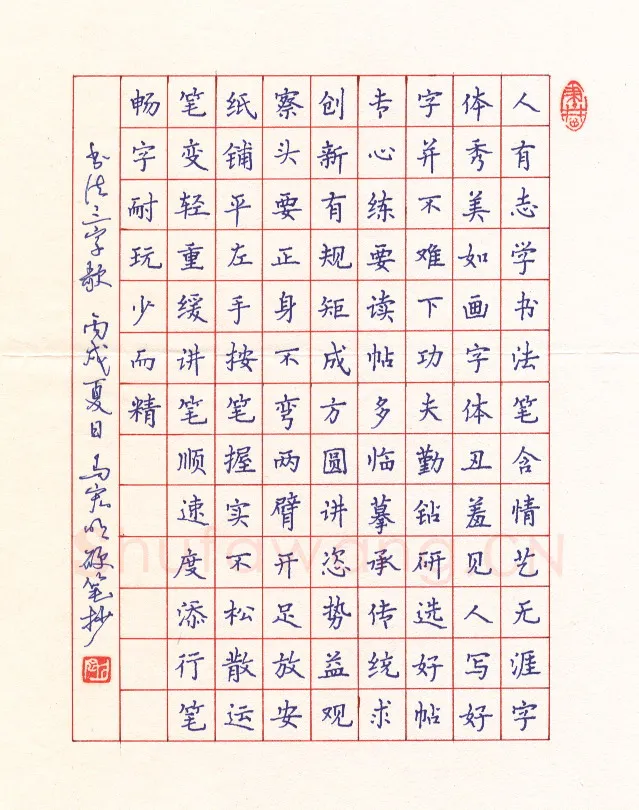 人有志学书法笔含情艺无涯字
体秀美如画字体丑羞见人写好
字并不难下功夫勤钻研选好帖
专心练要读帖多临摹承传统求
创新有规矩成方圆讲恣势益观
察头要正身不弯两臂开足放安
纸铺平左手按笔握实不松散运
笔变轻重缓讲笔顺速度添行笔
畅字耐玩少而精
书法三字歌 丙戌夏日 马宏 硬笔抄
Shufawang.CN